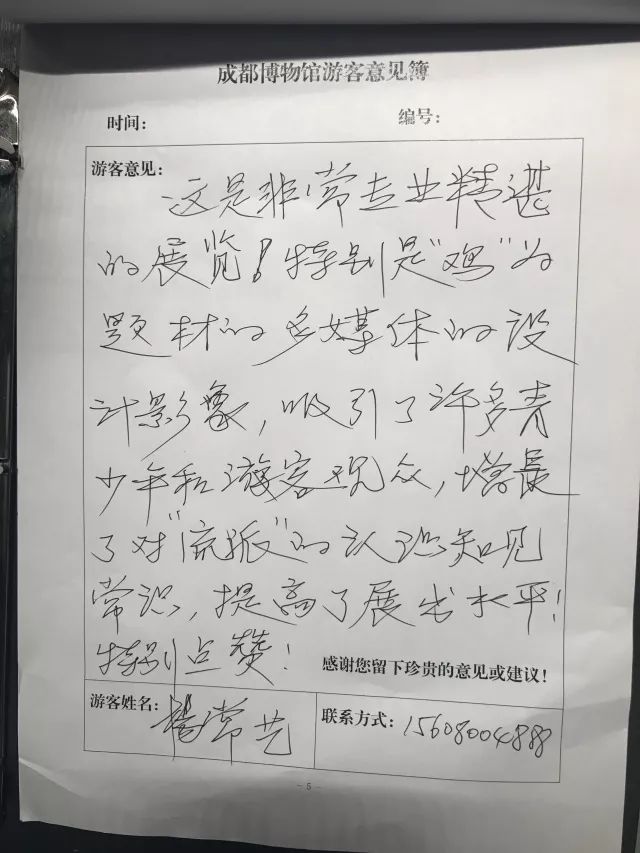 成都博物馆游客意见簿
时间: 编号:
游客意见:
这是非常专业精湛
的展览!特别是"鸡"为
题材的多媒体的设
计影象,吸引了许多青
少年和游客观众,增长
了对"流派"的认识知见
常识,提高了展出水平!
特别点赞!
感谢您留下珍贵的意见或建议!
游客姓名: 杨常艺
联系方式: 15608004888
- 5 -